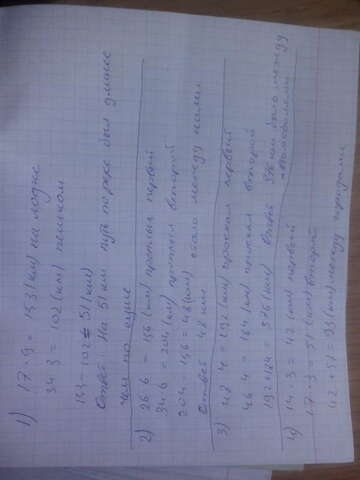 1) 17 · 9 = 153 (км) на лодке
34 · 3 = 102 (км) пешком
153 - 102 = 51 (км)
Ответ: На 51 км путь по реке был длиннее
чем по суше
2) 26 · 6 = 156 (км) проплыл первый
34 · 6 = 204 (км) проплыл второй
204 - 156 = 48 (км) стало между ними
Ответ 48 км
3) 48 · 4 = 192 (км) проехал первый
46 · 4 = 184 (км) проехал второй
192 + 184 = 376 (км) Ответ 376 км было между
автомобилями
4) 14 · 3 = 42 (км) первый
17 · 3 = 51 (км) второй
42 + 51 = 93 (км) между